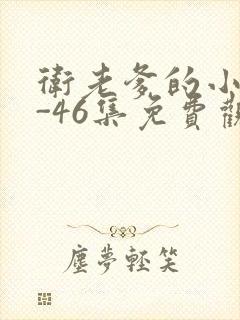 衛老爹的小
-46集免費觀
塵夢輕笑